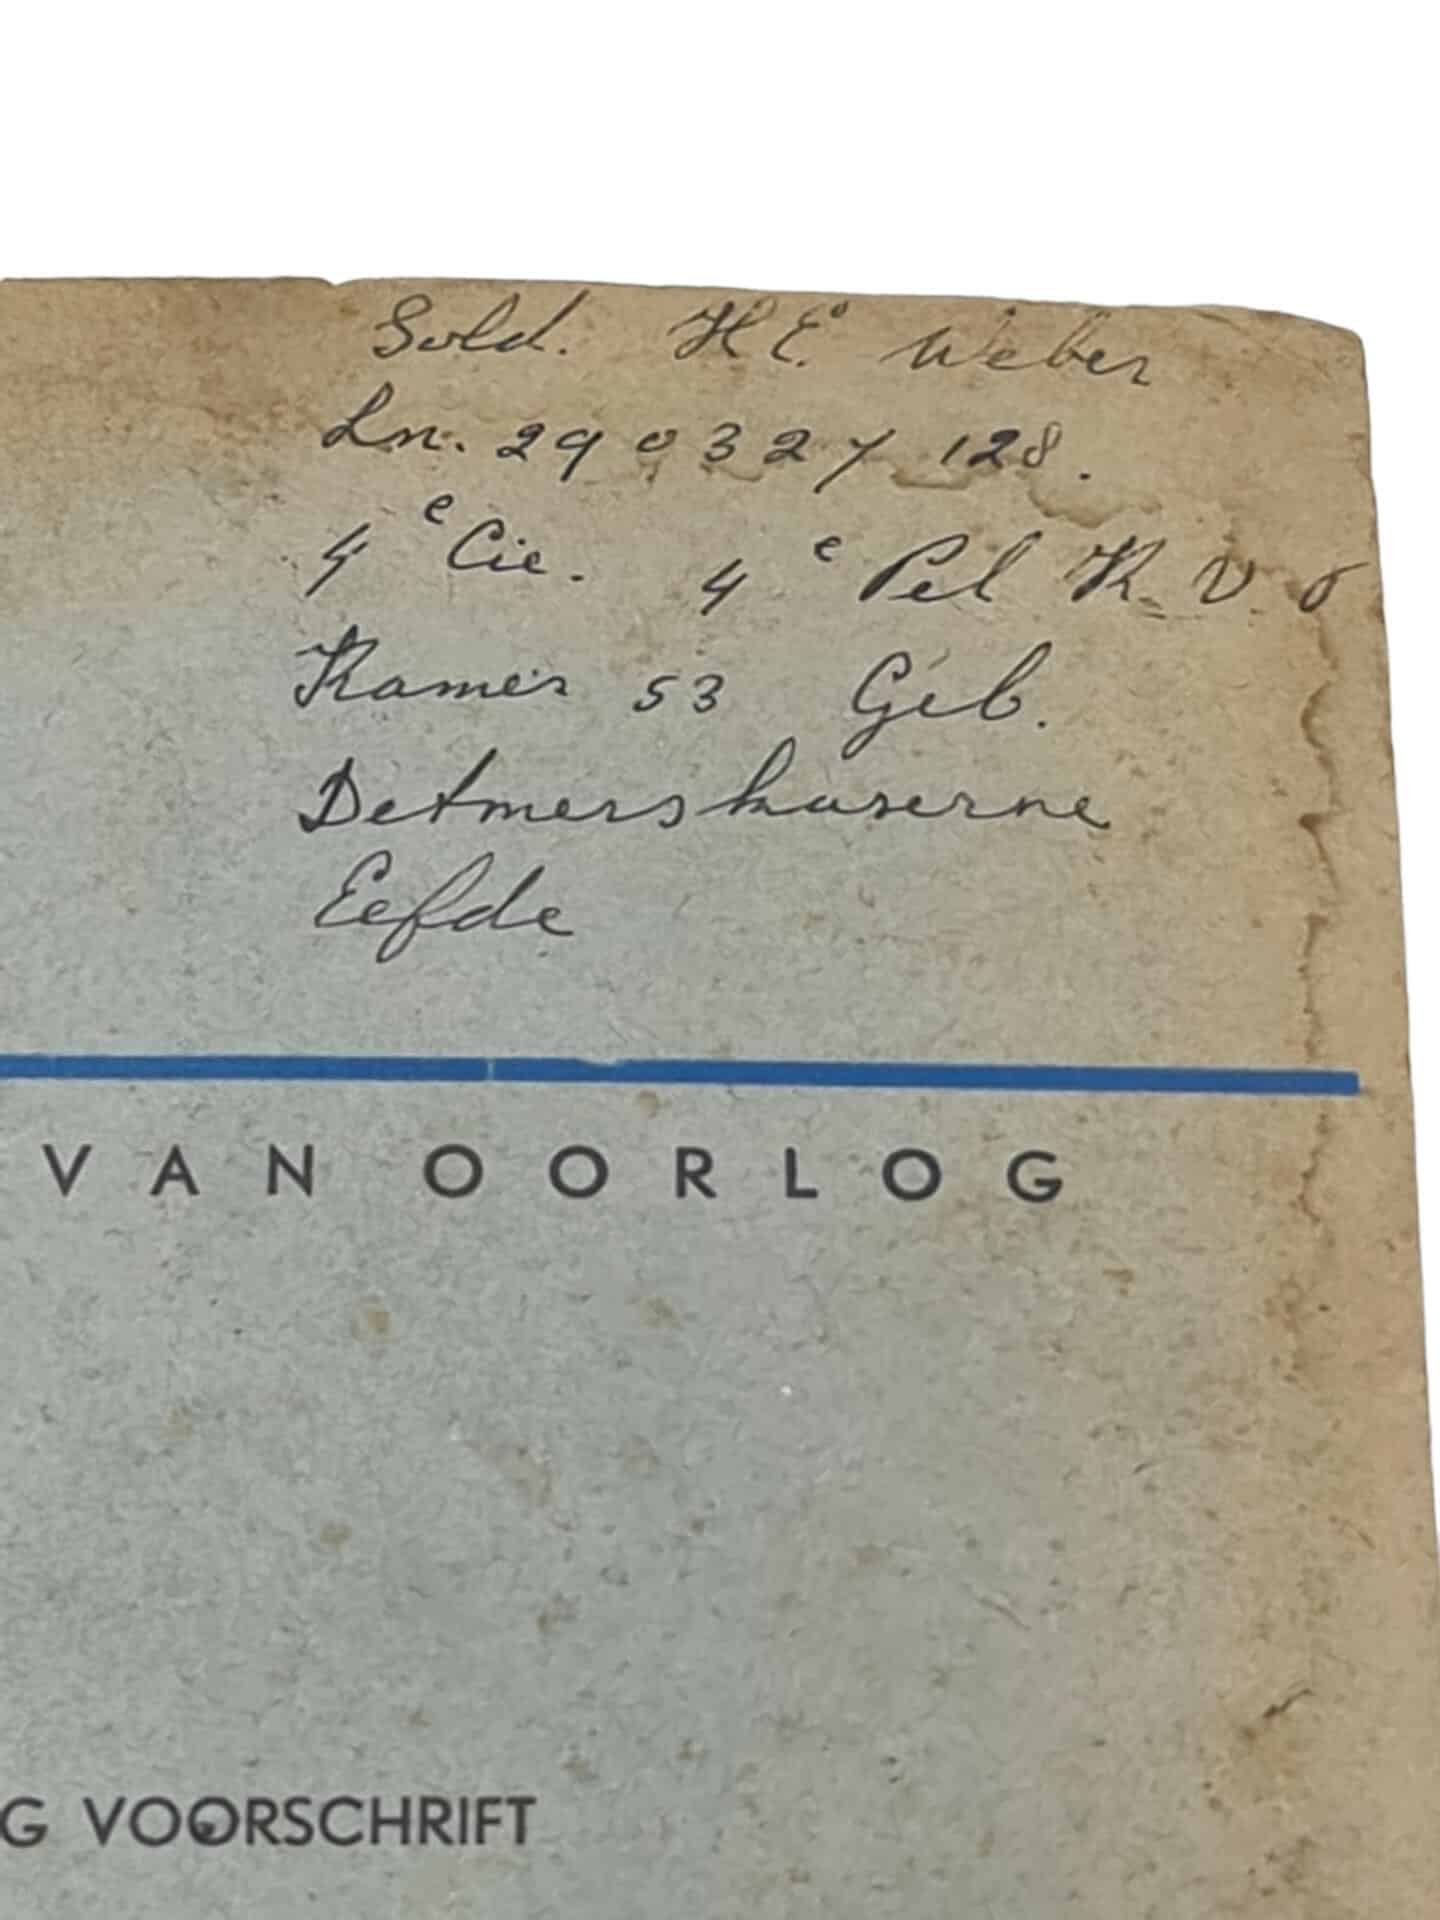 Sold. H.E. Weber
Ln. 290327 128.
4e Cie. 4e Pel K.V.O
Kamer 53 Geb.
Detmerskazerne
Eefde
VAN OORLOG
G VOORSCHRIFT